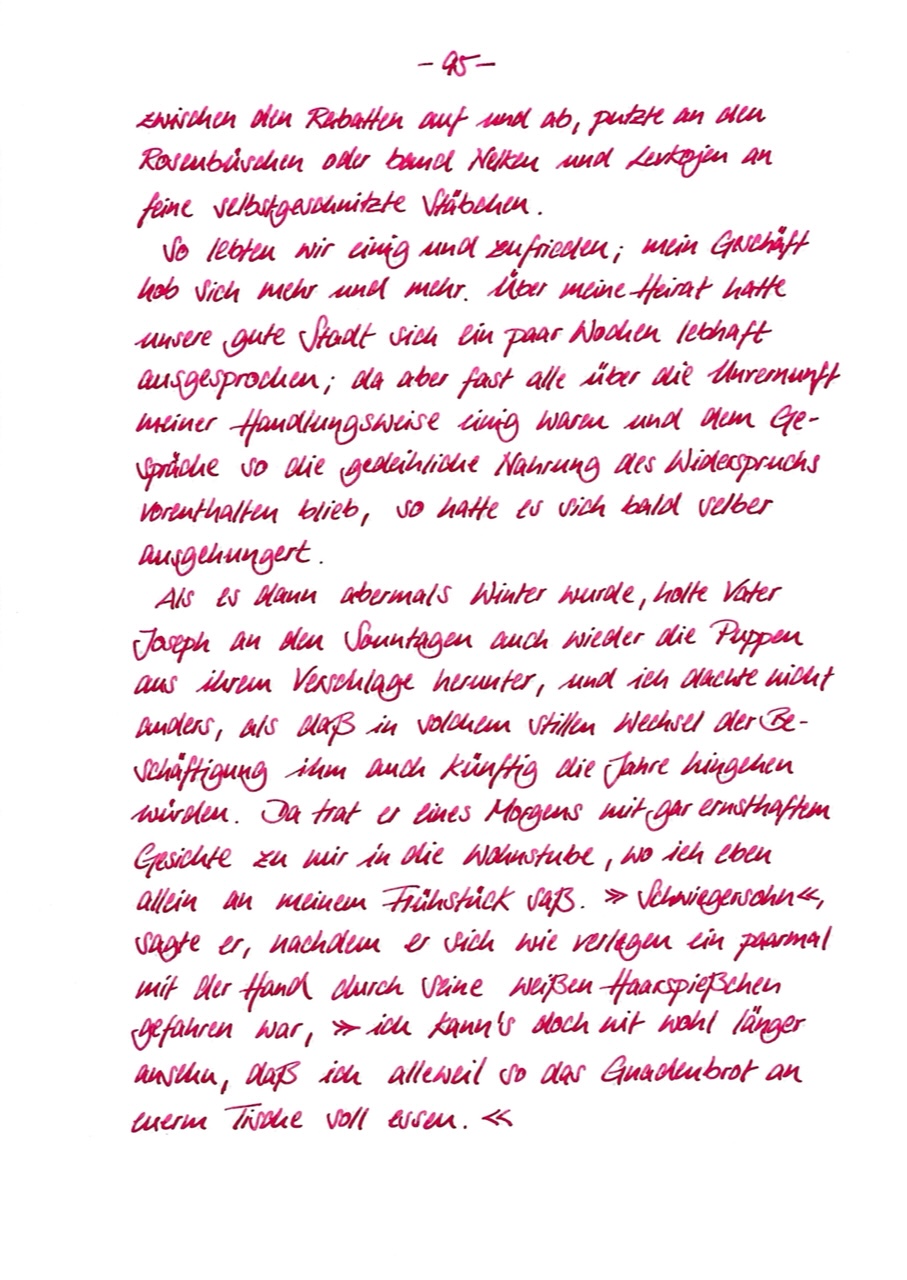 - 95 -
zwischen den Rabatten auf und ab, putzte an den
Rosenbüschen oder band Nelken und Levkojen an
feine selbstgeschnitzte Stäbchen.
So lebten wir einig und zufrieden; mein Geschäft
hob sich mehr und mehr. Über meine Heirat hatte
unsere gute Stadt sich ein paar Wochen lebhaft
ausgesprochen; da aber fast alle über die Unvernunft
meiner Handlungsweise einig waren und dem Ge-
spräche so die gedeihliche Nahrung des Widerspruchs
vorenthalten blieb, so hatte es sich bald selber
ausgehungert.
Als es dann abermals Winter wurde, holte Vater
Joseph an den Sonntagen auch wieder die Puppen
aus ihrem Verschlage herunter, und ich dachte nicht
anders, als daß in solchem stillen Wechsel der Be-
schäftigung ihm auch künftig die Jahre hingehen
würden. Da trat er eines Morgens mit gar ernsthaftem
Gesichte zu mir in die Wohnstube, wo ich eben
allein an meinem Frühstück saß. »Schwiegersohn«,
sagte er, nachdem er sich wie verlegen ein paarmal
mit der Hand durch seine weißen Haarspießchen
gefahren war, »ich kann's doch nit wohl länger
ansehn, daß ich alleweil so das Gnadenbrot an
euerm Tische soll essen.«